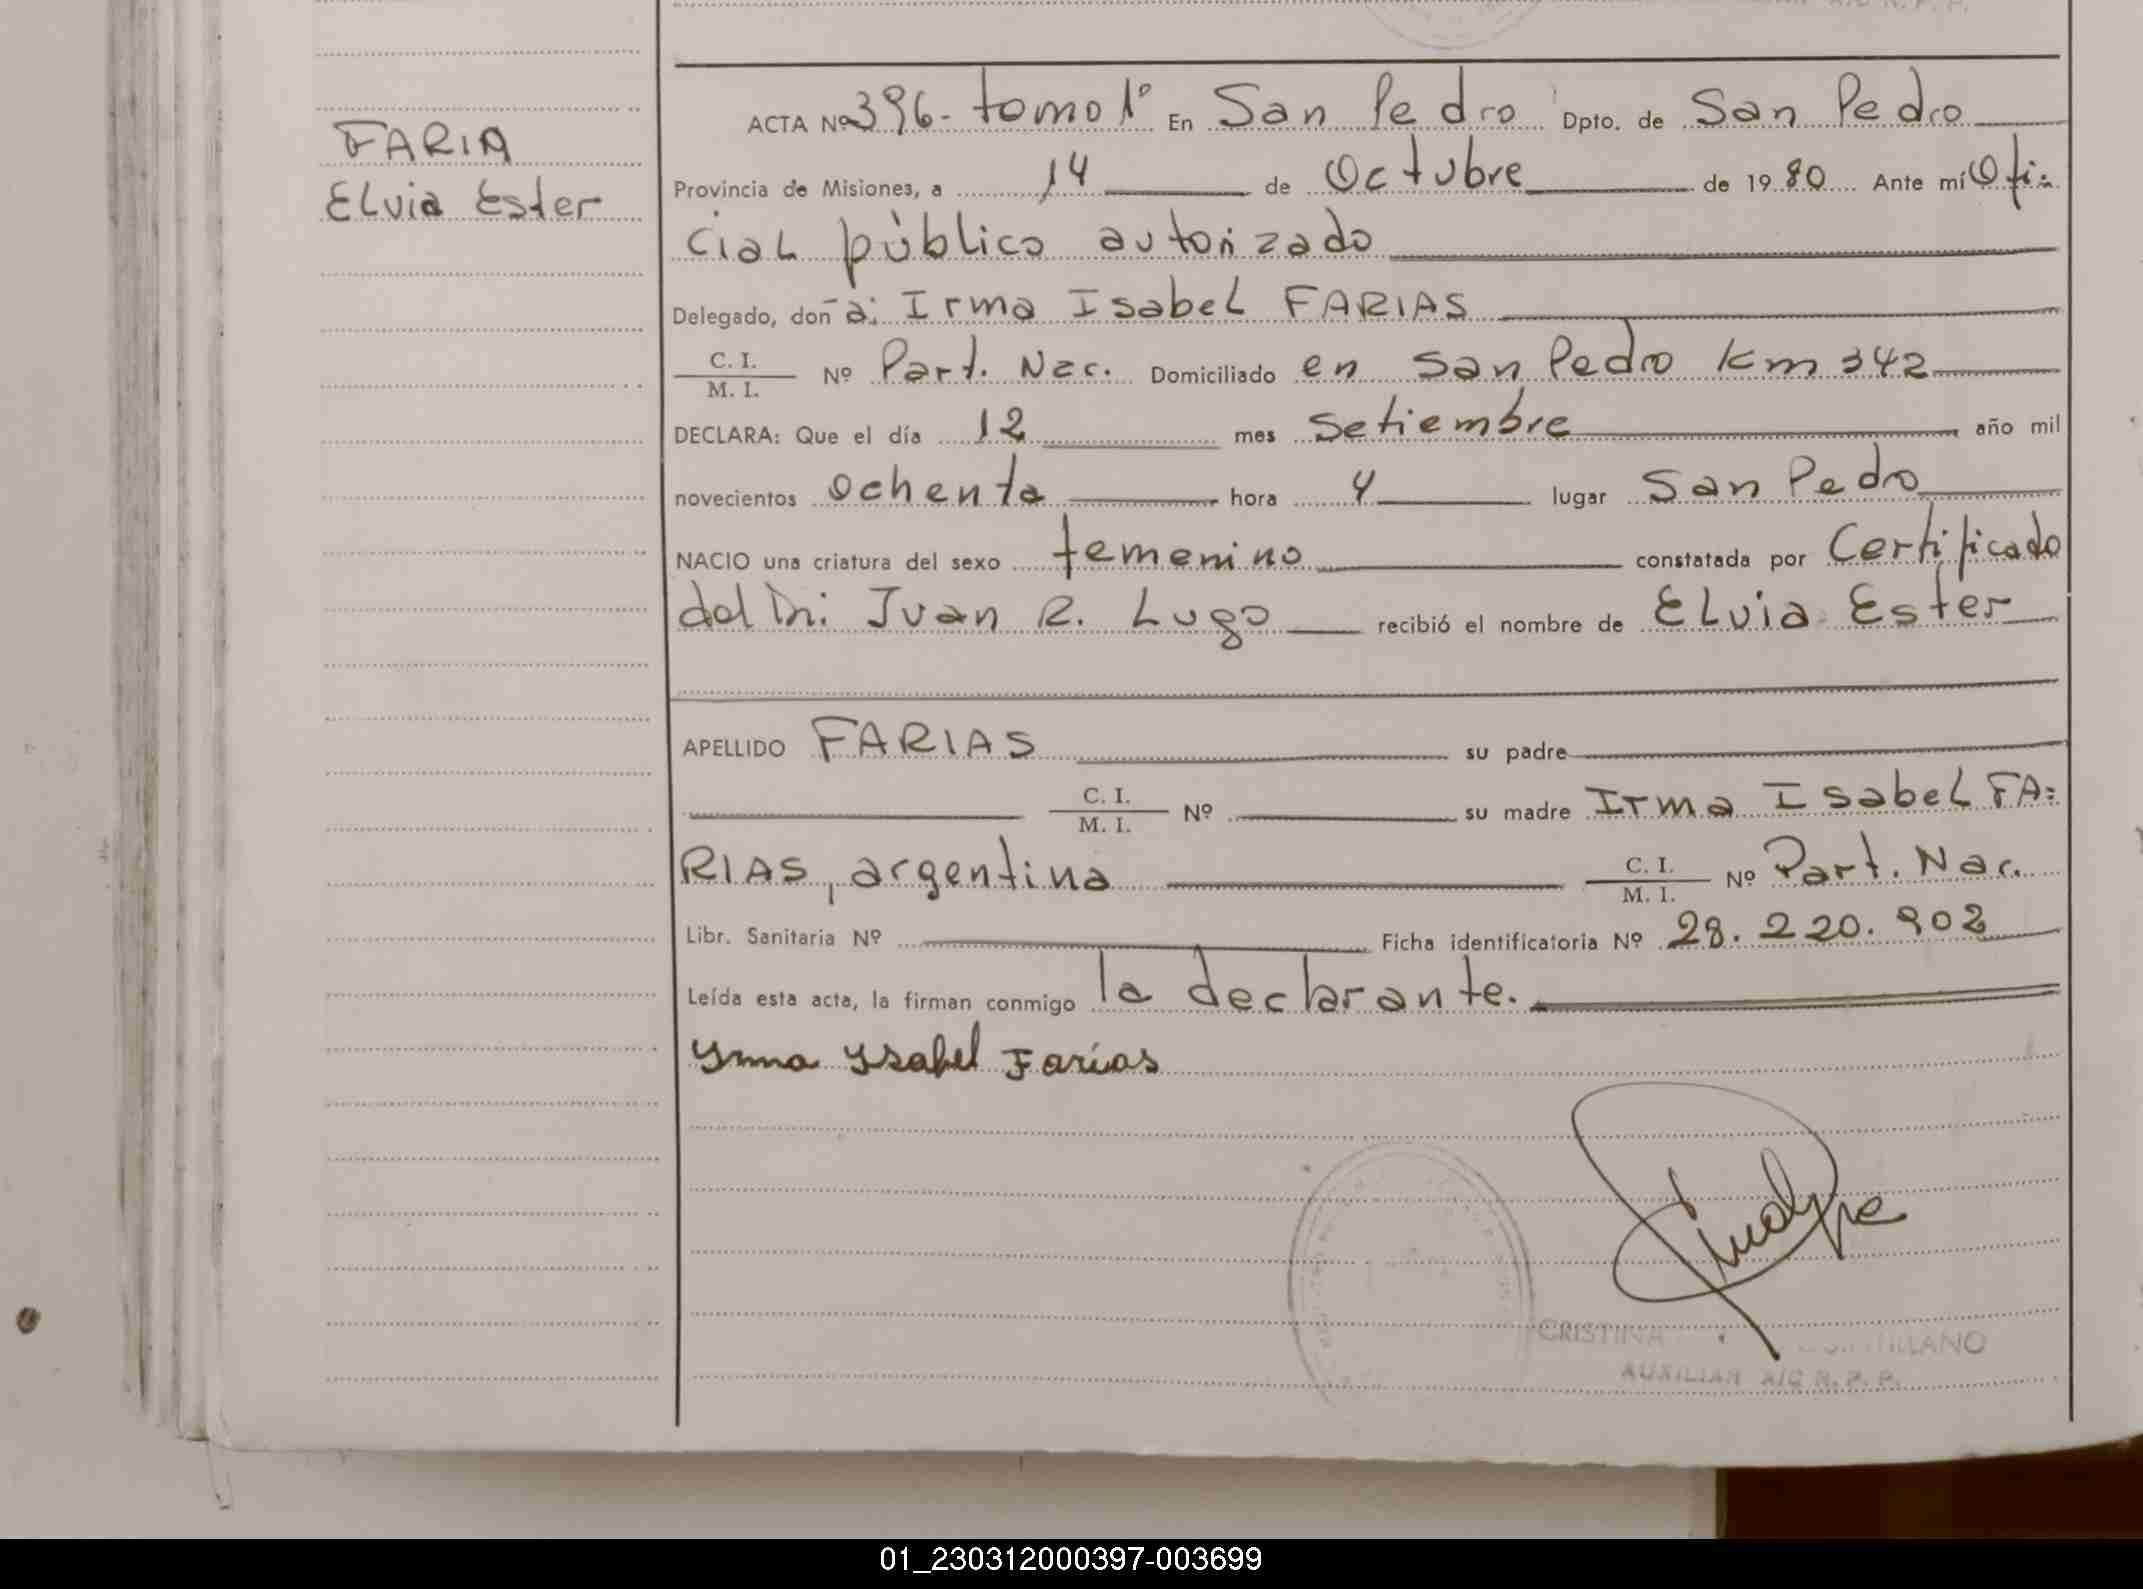 FARIA
ELvia Ester
ACTA Nº 396- tomo 1º En San Pedro Dpto. de San Pedro
Provincia de Misiones, a 14 de Octubre de 1980 Ante mí Ofi-
ciaL público autorizado
Delegado, doña: Irma IsabeL FARIAS
C. I.
M. I. Nº Part. Nac. Domiciliado en San Pedro Km 342
DECLARA: Que el día 12 mes Setiembre año mil
novecientos Ochenta hora 4 lugar San Pedro
NACIO una criatura del sexo femenino constatada por Certificado
del Dr. Juan R. Lugo recibió el nombre de ELvia Ester
APELLIDO FARIAS su padre
C. I.
M. I. Nº su madre Irma IsabeL FA=
RIAS, argentina C. I.
M. I. Nº Part. Nac.
Libr. Sanitaria Nº Ficha identificatoria Nº 28.220.902
Leída esta acta, la firman conmigo la declarante.
Yrma Ysabel Farias
CRISTINA
AUXILIAR A/C R. P. P.
01_230312000397-003699